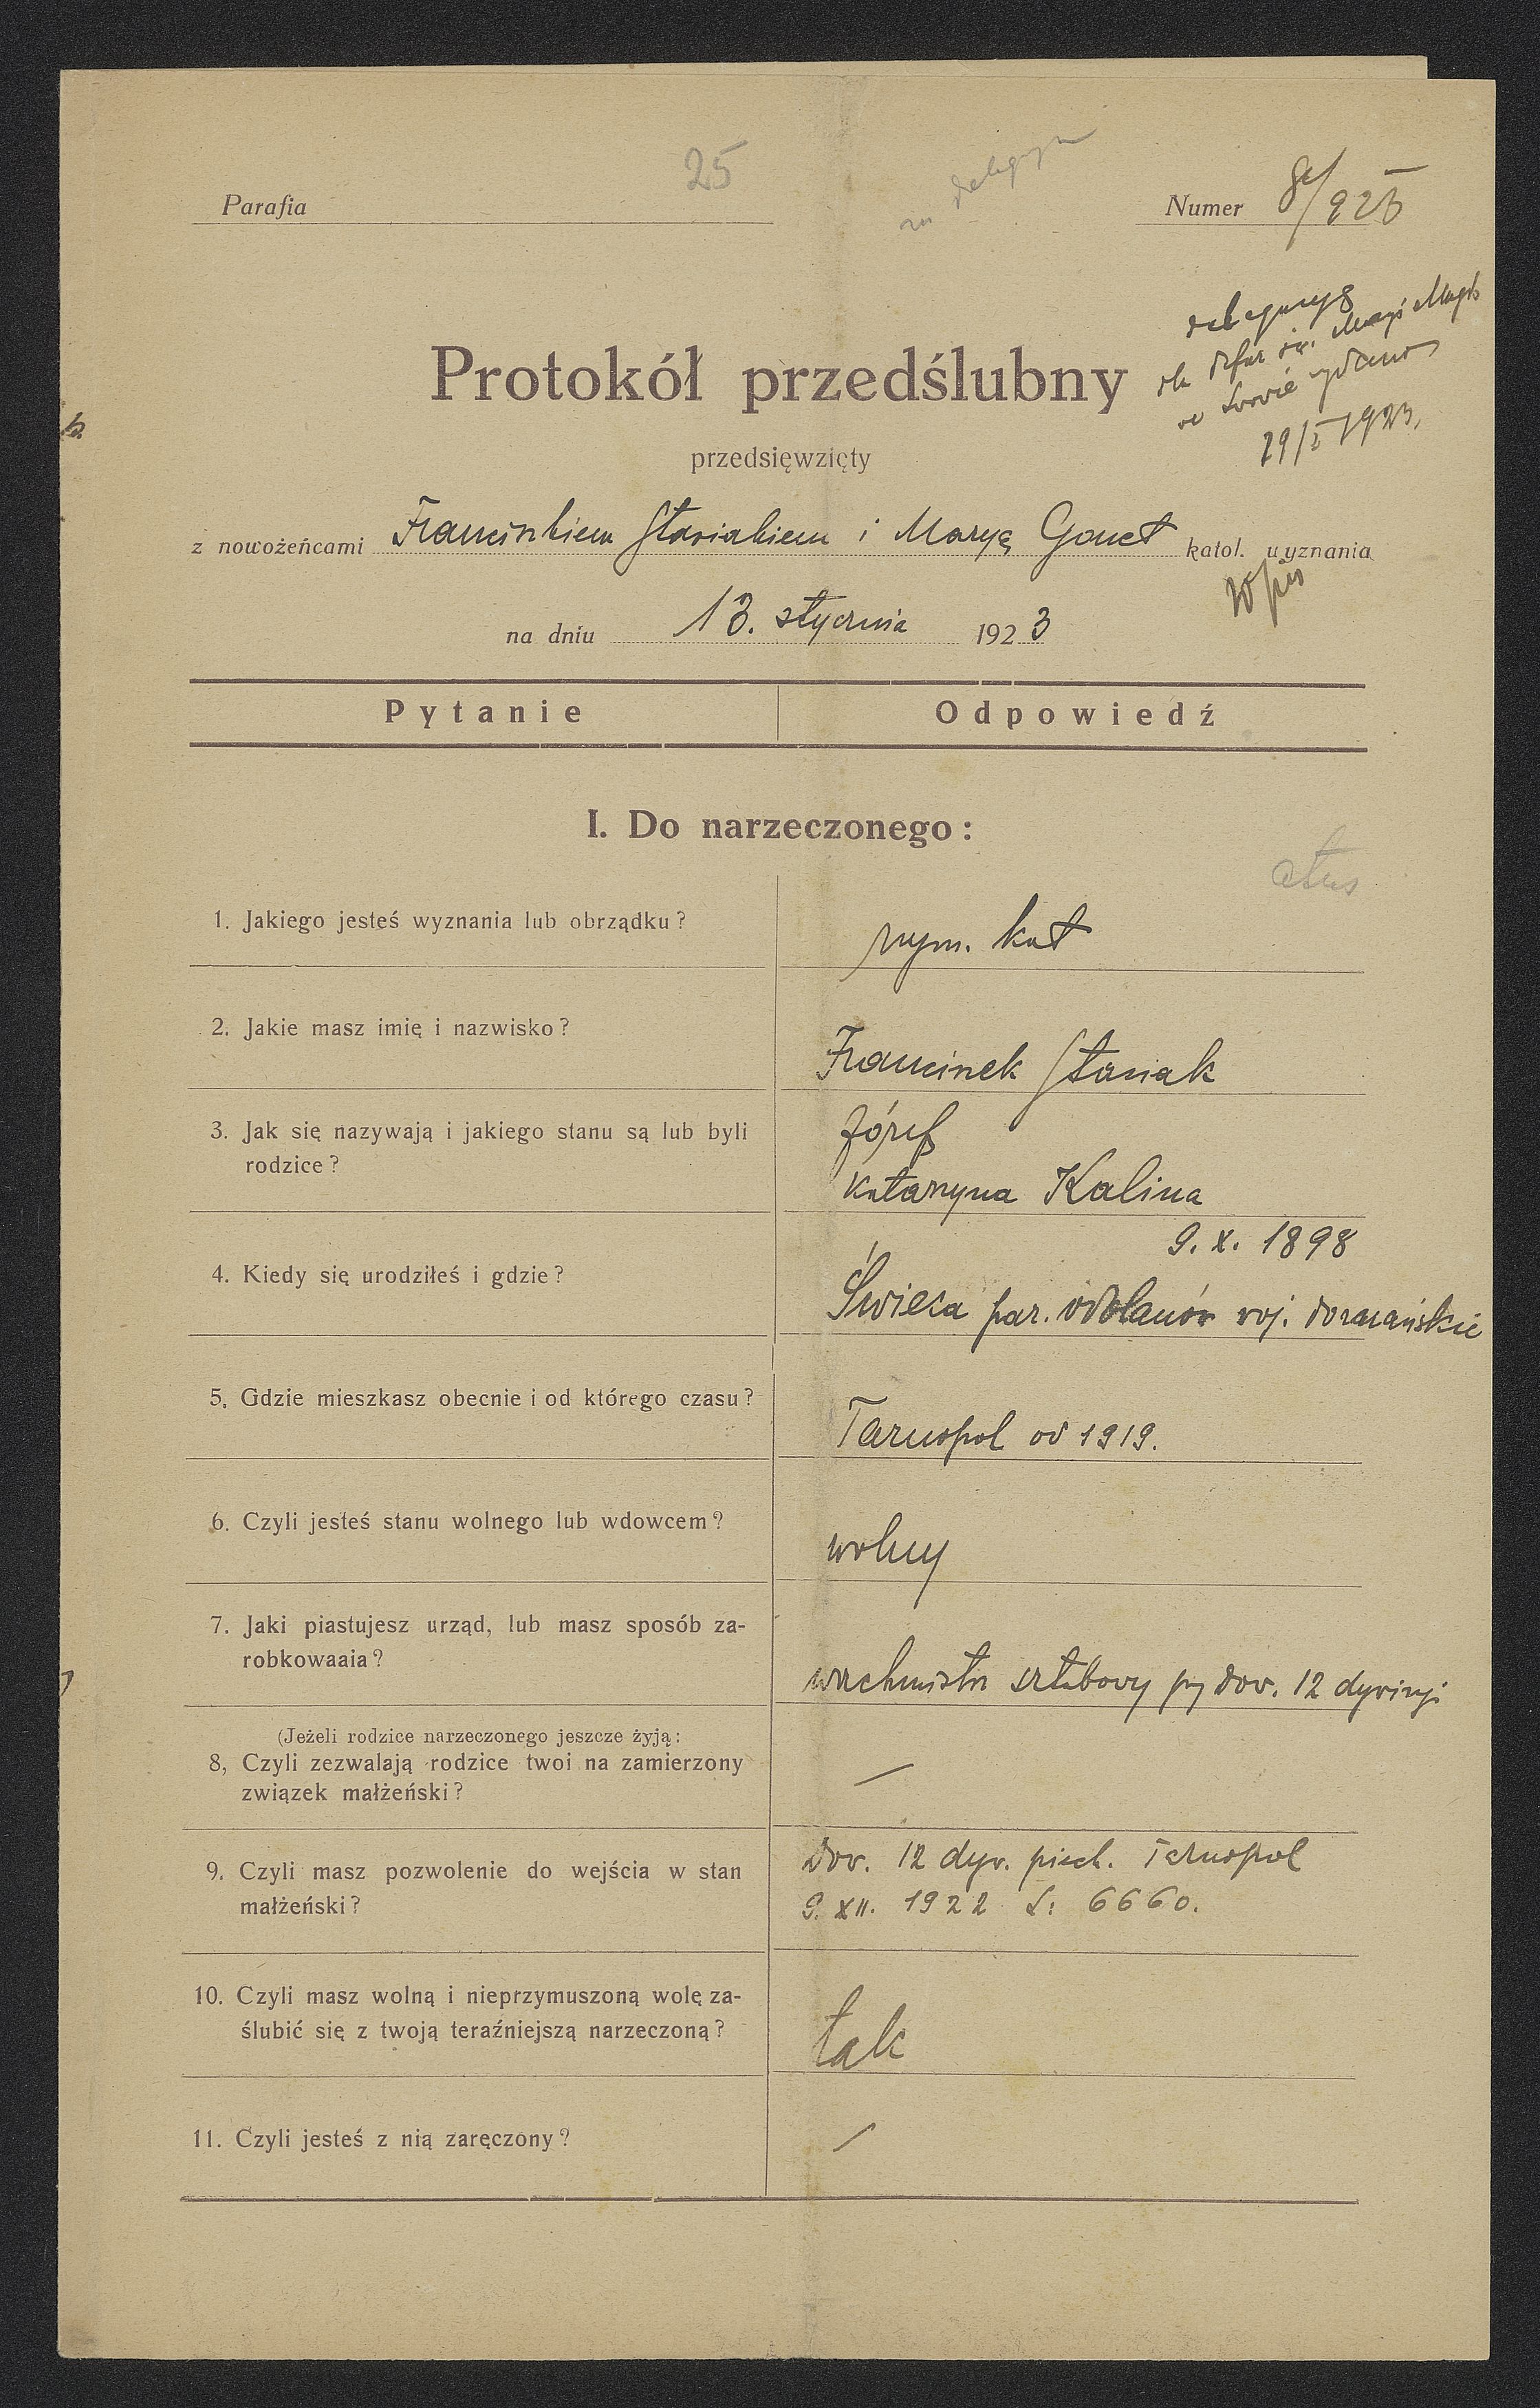 25
Parafia
Numer
delegacyę
dla
św. Maryi Magd
we Lwowie wydano
29/I 1923.
Protokół przedślubny
przedsięwzięty
z nowożeńcami Franciszkiem Stasiakiem i Maryą Gonet katol. wyznania
na dniu 13. stycznia 1923
Pytanie Odpowiedź
I. Do narzeczonego:
1. Jakiego jesteś wyznania lub obrządku?
rzym. kat
2. Jakie masz imię i nazwisko?
Franciszek Stasiak
3. Jak się nazywają i jakiego stanu są lub byli
rodzice?
Józef
Katarzyna Kalina
4. Kiedy się urodziłeś i gdzie?
9. X. 1898
Świeca par. Odolanów woj. poznańskie
5. Gdzie mieszkasz obecnie i od którego czasu?
Tarnopol od 1919.
6. Czyli jesteś stanu wolnego lub wdowcem?
wolny
7. Jaki piastujesz urząd, lub masz sposób za-
robkowaaia?
wachmistrz sztabowy przy dow. 12 dywizyi
(Jeżeli rodzice narzeczonego jeszcze żyją:
8, Czyli zezwalają rodzice twoi na zamierzony
związek małżeński?
—
9. Czyli masz pozwolenie do wejścia w stan
małżeński?
Dow. 12 dyw. piech. Tarnopol
9. XII. 1922 L: 6660.
10. Czyli masz wolną i nieprzymuszoną wolę za-
ślubić się z twoją teraźniejszą narzeczoną?
tak
11. Czyli jesteś z nią zaręczony?
—